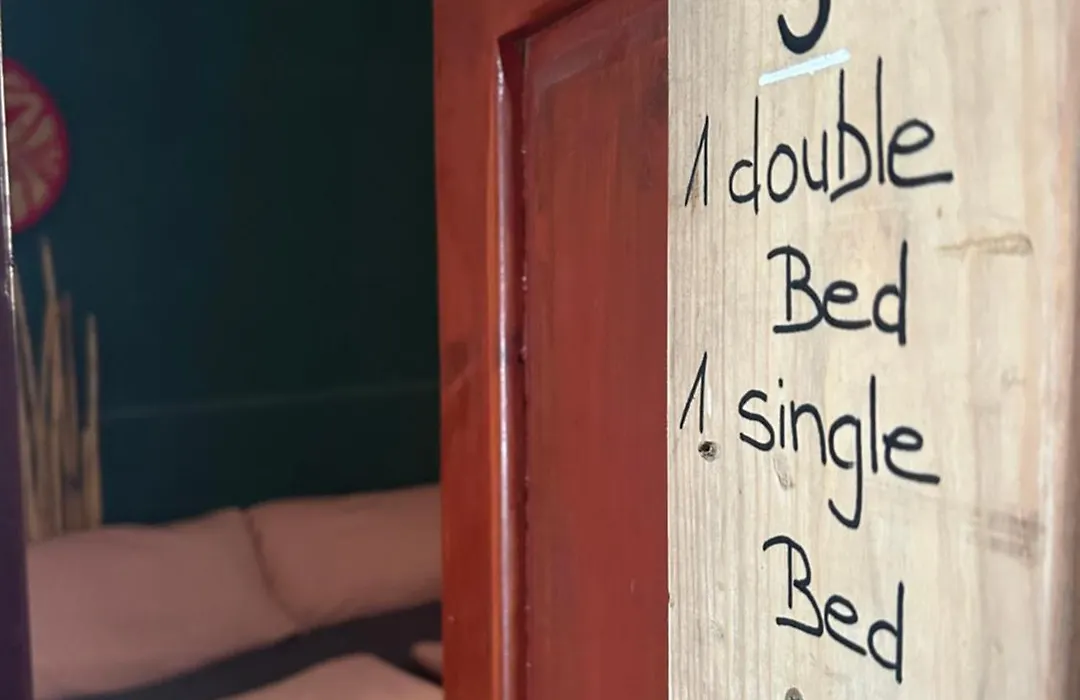 1 double
Bed
1 single
Bed